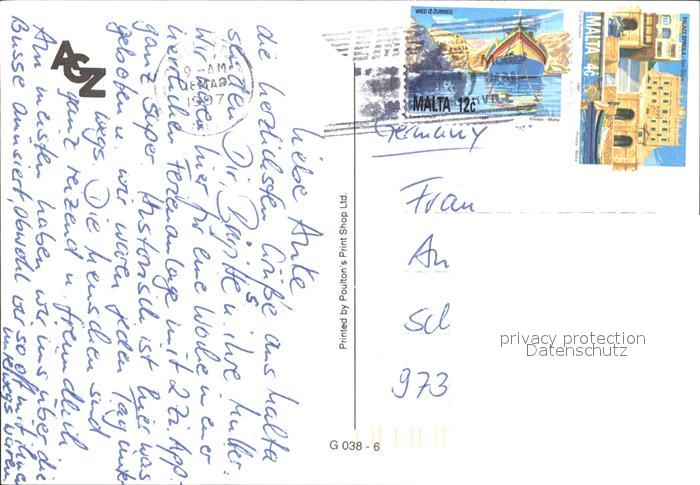 Liebe Anke
die herzlichsten Grüße aus Malta
senden Dir, Brigitte u. ihre Mutter.
Wir sind hier für eine Woche in einer
herrlichen Ferienanlage mit 2 Zi App.
ganz super. Historisch ist hier was
geboten u. wir waren jeden Tag unter
wegs. Die Menschen sind
ganz reizend u. freundlich
Am meisten haben wir uns über die
Busse amüsiert, obwohl wir so oft mit ihnen
unterwegs waren
AGN
9-AM
MAR
1997
WIED IŻ-ŻURRIEQ
MALTA 12c
Printex - Malta
MALTA 4c
Germany
Frau
An
Scl
973
privacy protection
Datenschutz
Printed by Poulton's Print Shop Ltd.
G 038 - 6